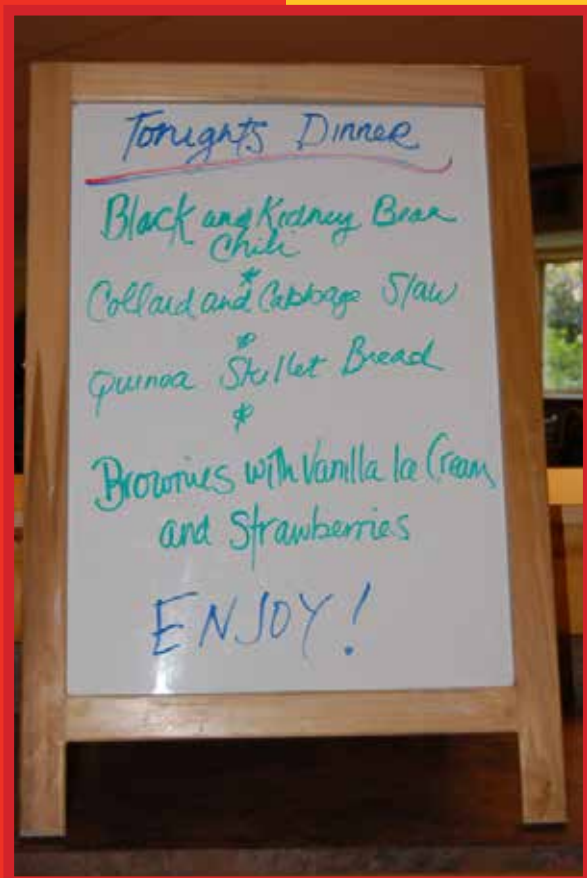 Tonights Dinner
Black and Kidney Bean
Chili
*
Collard and Cabbage Slaw
*
Quinoa Skillet Bread
*
Brownies with Vanilla Ice Cream
and Strawberries
ENJOY!